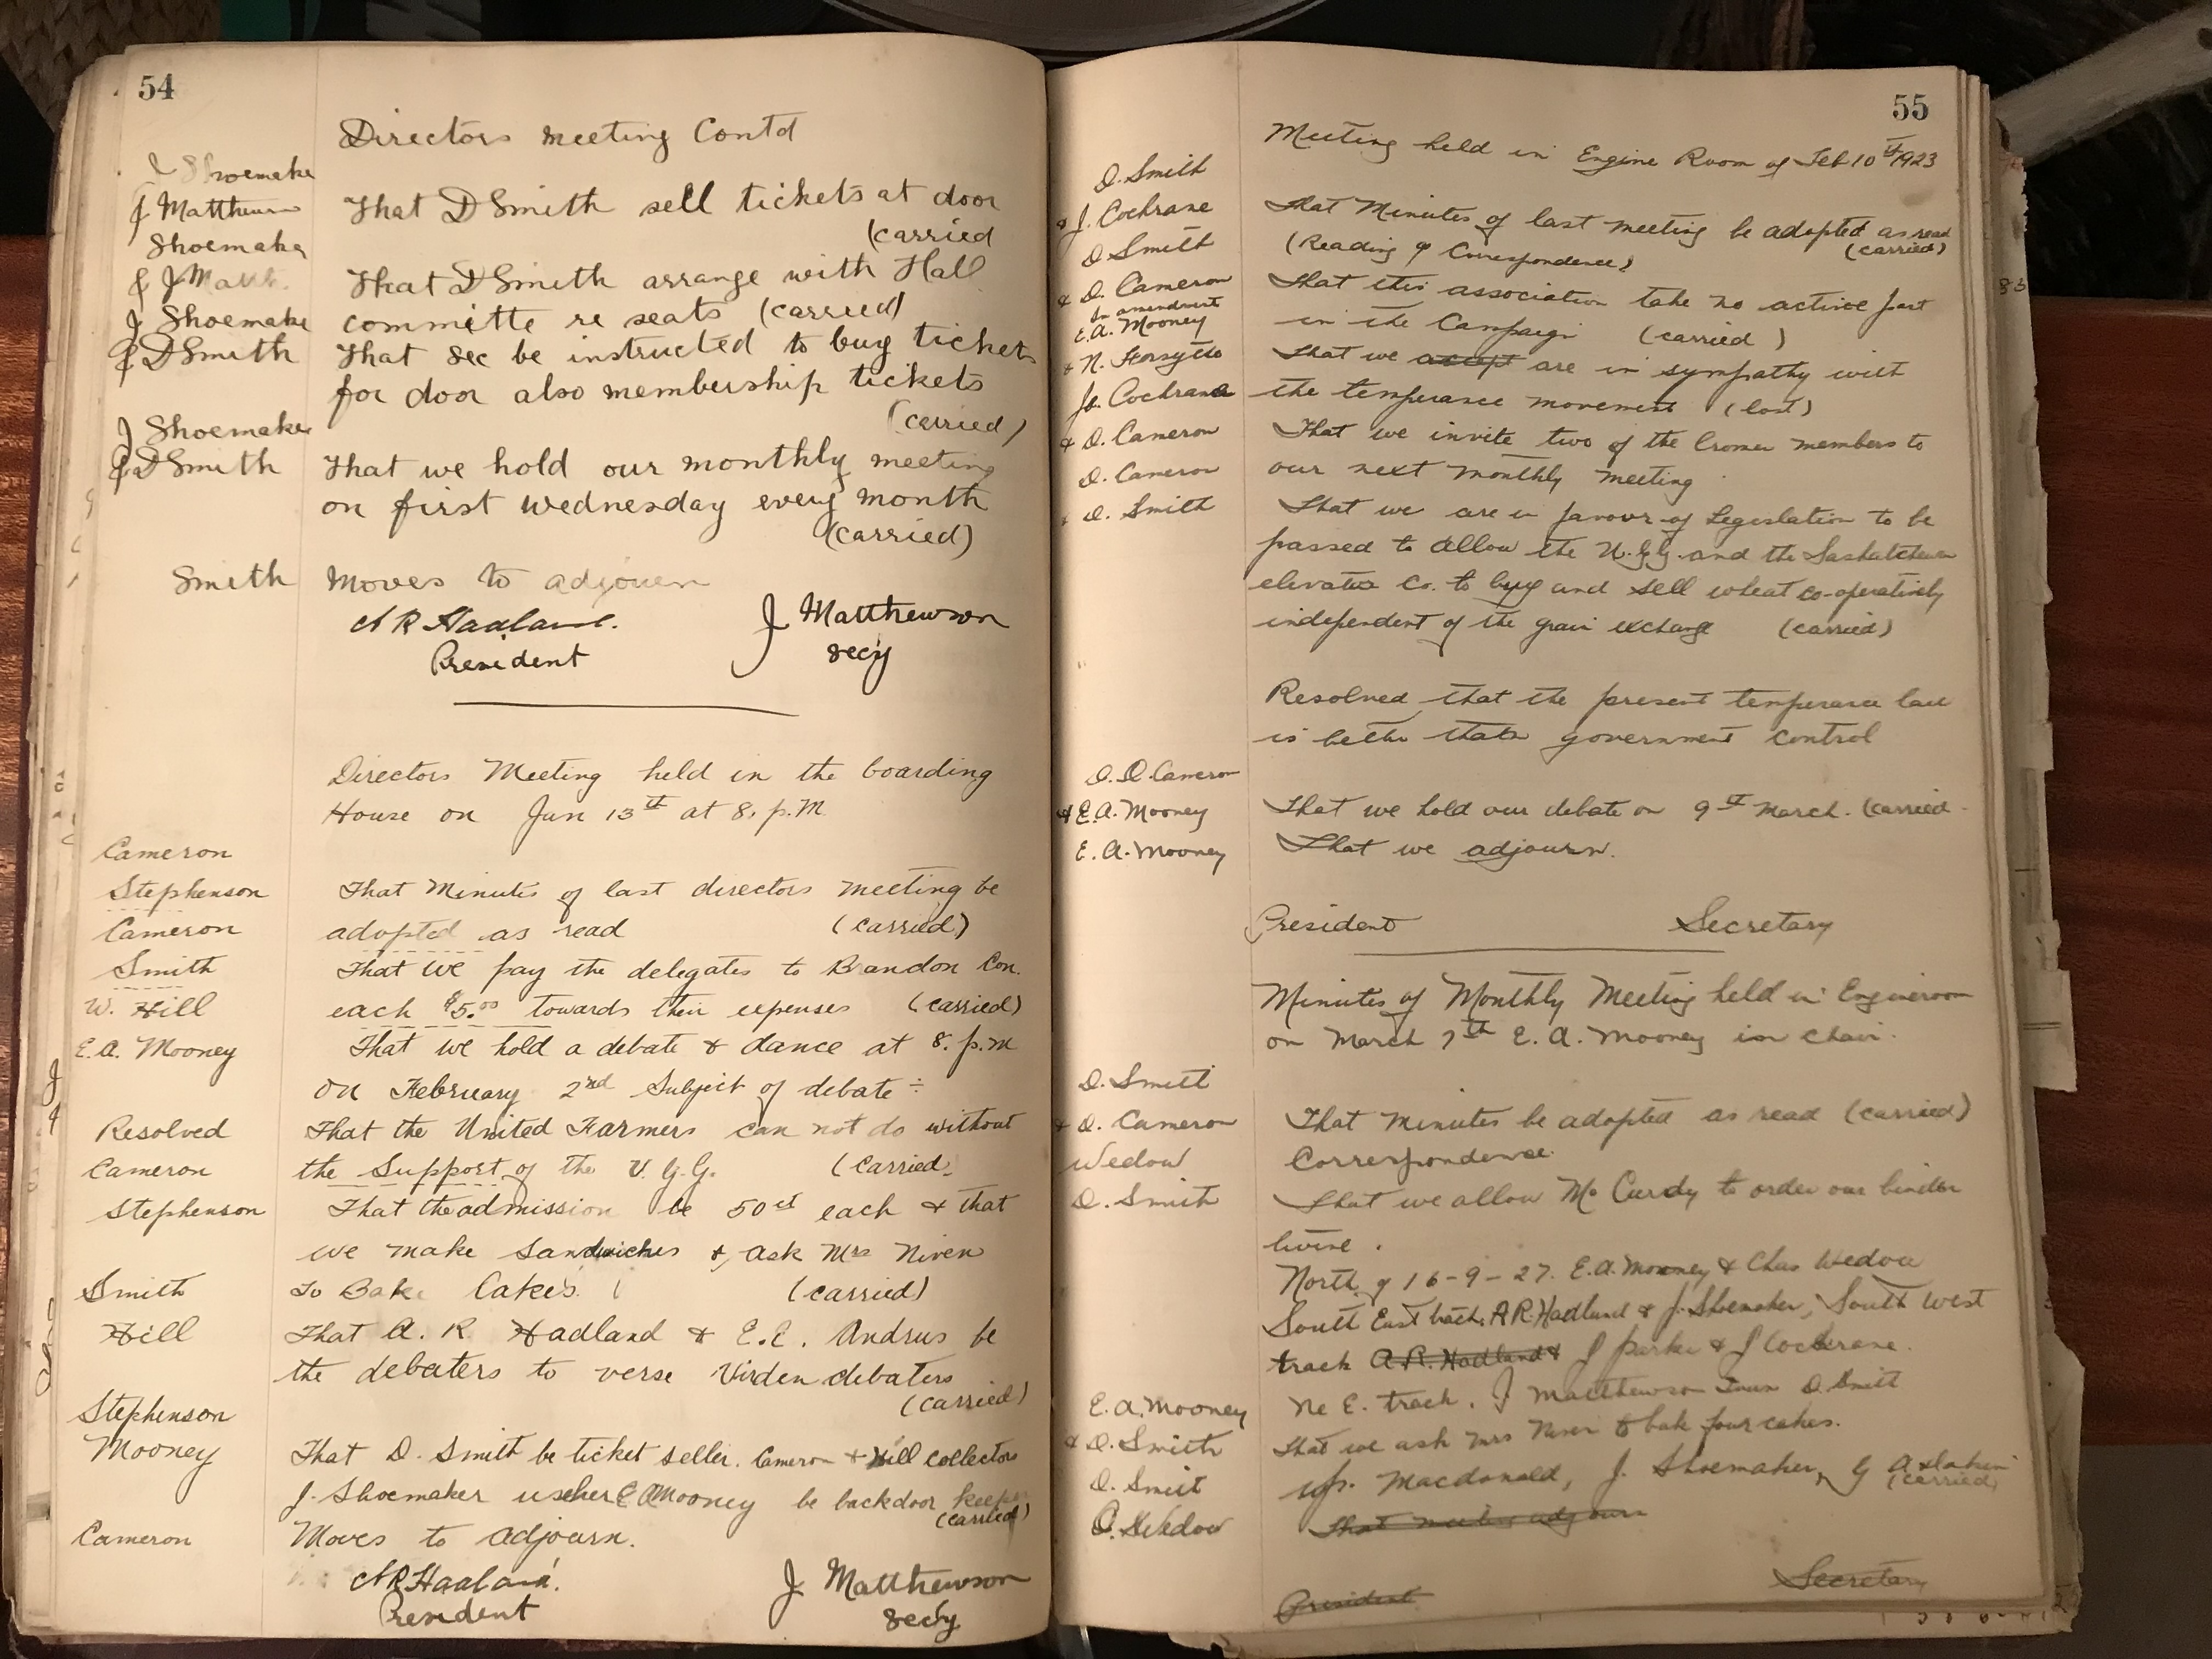 54
Directors meeting Contd
J Shoemaker
& J Matthewson That D Smith sell tickets at door
(carried
Shoemaker
& J Matth. That D Smith arrange with Hall
committe re seats (carried)
J Shoemaker
& D Smith That sec be instructed to buy tickets
for door also membership tickets
(carried)
J Shoemaker
& D Smith That we hold our monthly meeting
on first Wednesday every month
(carried)
Smith Moves to adjourn
A R Hadland. J Matthewson
President secy
Directors Meeting held in the boarding
House on Jan 13th at 8. p.m.
Cameron
Stephenson That Minutes of last directors meeting be
Cameron adopted as read (carried)
Smith That we pay the delegates to Brandon Con.
W. Hill each $5.00 towards their expenses (carried)
E.A. Mooney That we hold a debate & dance at 8. p.m
on February 2nd Subject of debate ÷
Resolved That the United Farmers can not do without
Cameron the Support of the U.G.G. (carried)
Stephenson That the admission be 50ct each & that
we make Sandwiches & ask Mrs Niven
Smith To Bake Cakes. (carried)
Hill That A. R. Hadland & E.E. Andrus be
the debaters to verse Virden debaters
(carried)
Stephenson
Mooney That D. Smith be ticket seller. Cameron & Hill collectors
J. Shoemaker usher E A Mooney be backdoor keeper
(carried)
Cameron Moves to adjourn.
A R Hadland. J Matthewson
President secy
55
Meeting held in Engine Room of Feb 10th 1923
D. Smith
& J. Cochrane That Minutes of last meeting be adopted as read
(carried)
D Smith (Reading of Correspondence)
& D. Cameron That this association take no active part
In amendment
E.A. Mooney in the Campaign (carried)
& N. Forsythe That we accept are in sympathy with
Jo. Cochrane the temperance movement (lost)
& D. Cameron That we invite two of the Cromer members to
D. Cameron our next monthly meeting
& D. Smith That we are in favour of Legislation to be
passed to allow the U.G.G. and the Saskatchewan
elevator Co. to buy and sell wheat co-operatively
independent of the grain exchange (carried)
Resolved that the present temperance law
is better than government control
D. D. Cameron
& E.A. Mooney That we hold our debate on 9th March. (carried
E. A. Mooney That we adjourn.
President Secretary
Minutes of Monthly Meeting held in Engineroom
on March 7th E. A. Mooney in chair.
D. Smith
& D. Cameron That minutes be adopted as read (carried)
Wedow Correspondence
D. Smith That we allow Mc Curdy to order our binder
twine.
North of 16-9-27. E.A. Mooney & Chas Wedow
South East track, A R. Hadland & J. Shoemaker, South West
track A.R. Hadland & J Parke & J Cochrane.
E.A. Mooney N E. track. J Matthewson D. Smith
& D. Smith That we ask Mrs Niven to bake four cakes.
D. Smith Macdonald, J. Shoemaker, G
(carried)
C. Wedow That meeting adjourn
President Secretary